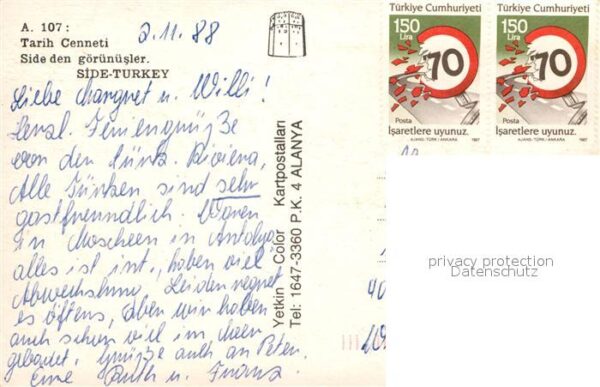 A. 107:
Tarih Cenneti
Side den görünüşler.
SİDE-TURKEY
2.11.88
Liebe Margret u. Willi!
Herzl. Feriengrüße
von der türk. Riviera,
Alle Türken sind sehr
gastfreundlich. Waren
in Moscheen in Antalya
alles ist int., haben viel
Abwechslung. Leider regnet
es öfters, aber wir haben
auch schon viel im Meer
gebadet. Grüße auch an Peter.
Eure Ruth u. Franz.
Yetkin Color Kartpostalları
Tel: 1647-3360 P.K. 4 ALANYA
Türkiye Cumhuriyeti
150
Lira
70
Posta
İşaretlere uyunuz.
AJANS-TÜRK / ANKARA 1987
Türkiye Cumhuriyeti
150
Lira
70
Posta
İşaretlere uyunuz.
AJANS-TÜRK / ANKARA 1987
privacy protection
Datenschutz
40